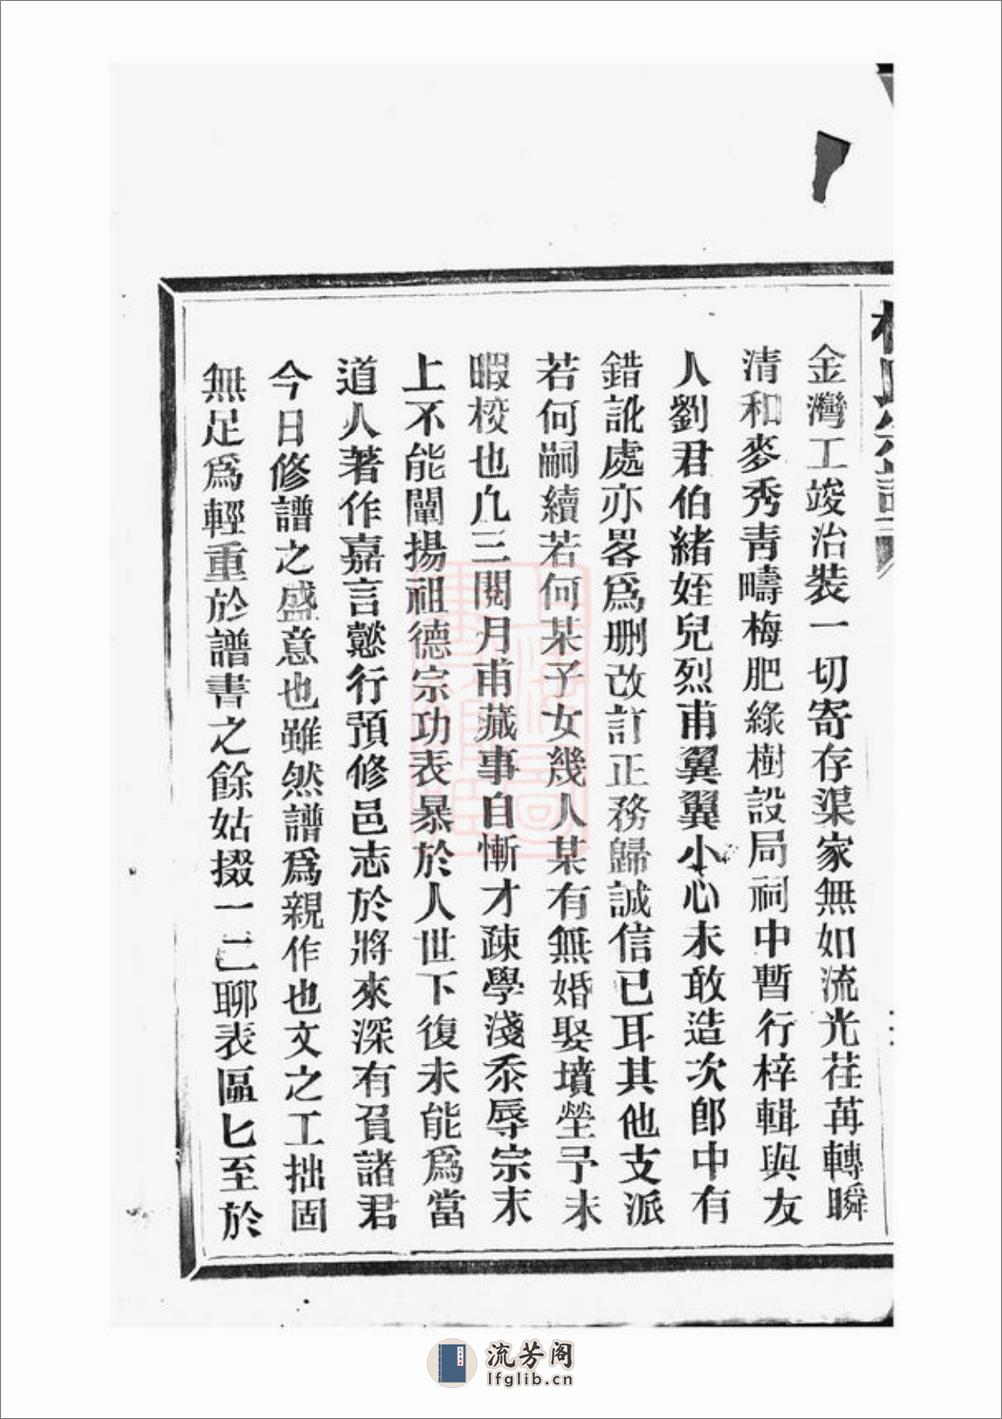 金灣工竣治裝一切寄存渠家無如流光荏苒轉瞬
清和麥秀青疇梅肥綠樹設局祠中暫行梓輯與友
人劉君伯緒姪兒烈甫翼翼小心未敢造次郎中有
錯訛處亦畧為刪改訂正務歸誠信已耳其他支派
若何嗣續若何某子女幾人某有無婚娶墳塋予未
暇校也凡三閱月甫蕆事自慚才疎學淺忝辱宗末
上不能闡揚祖德宗功表暴於人世下復未能爲當
道人著作嘉言懿行預修邑志於將來深有負諸君
今日修譜之盛意也雖然譜爲親作也文之工拙固
無足爲輕重於譜書之餘姑掇一二聊表區匕至於
流芳阁
lfglib.cn